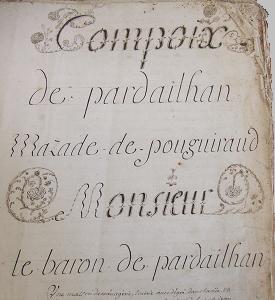 Compoix
de pardailhan
Mazade de pouguiraud
Monsieur
le baron de pardailhan